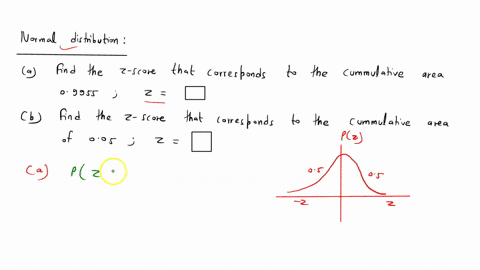 Normal distribution:
(a) Find the z-score that corresponds to the cummulative area
0.9955 ; z =
(b) Find the z-score that corresponds to the cummulative area
of 0.05 ; z =
P(z)
(a) P(z
0.5 0.5
-z z